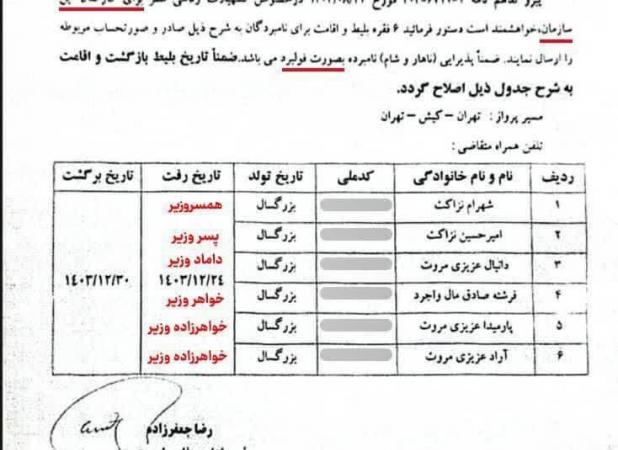 سازمان،خواهشمند است دستور فرمائید ۶ فقره بلیط و اقامت برای نامبردگان به شرح ذیل صادر و صورتحساب مربوطه
را ارسال نمایند. ضمناً پذیرایی (ناهار و شام) نامبرده بصورت فولبرد می باشد.ضمناً تاریخ بلیط بازگشت و اقامت
به شرح جدول ذیل اصلاح گردد.
مسیر پرواز: تهران – کیش – تهران
تلفن همراه متقاضی:
ردیف نام و نام خانوادگی کدملی تاریخ تولد تاریخ رفت تاریخ برگشت
۱ شهرام نزاکت بزرگسال همسروزیر
۲ امیرحسین نزاکت بزرگسال پسر وزیر
۳ دانیال عزیزی مروت بزرگسال داماد وزیر
۱۴۰۳/۱۲/۲۴ ۱۴۰۳/۱۲/۳۰
۴ فرشته صادق مال واجرد بزرگسال خواهر وزیر
۵ پارمیدا عزیزی مروت بزرگسال خواهرزاده وزیر
۶ آراد عزیزی مروت بزرگسال خواهرزاده وزیر
رضا جعفرزاده